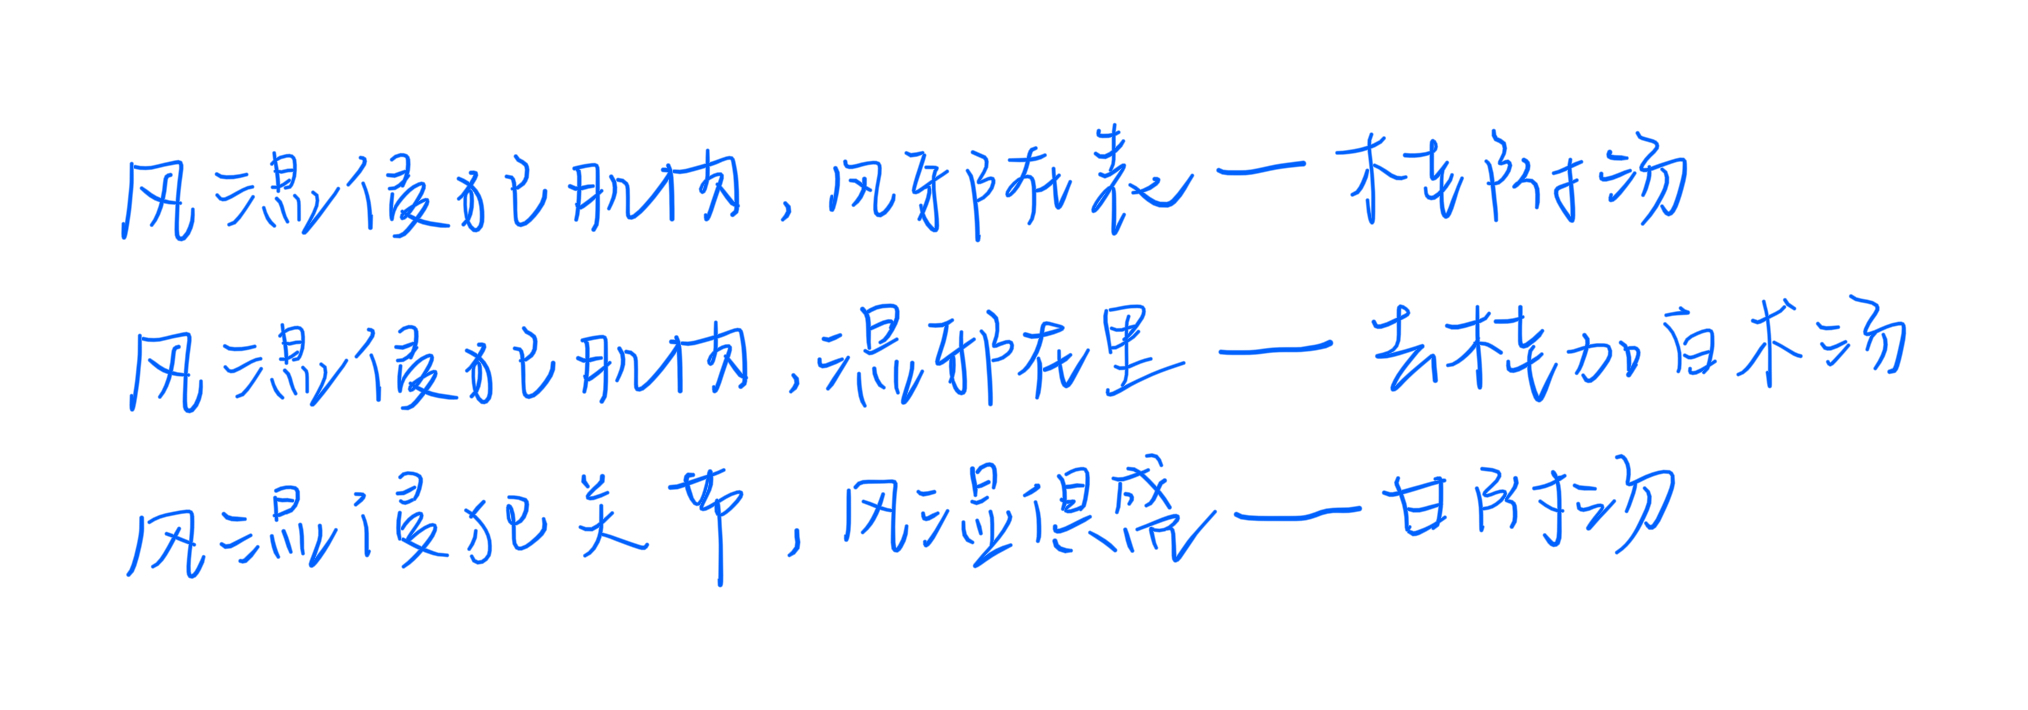 风湿侵犯肌肉，风邪在表——桂附汤
风湿侵犯肌肉，湿邪在里——去桂加白术汤
风湿侵犯关节，风湿俱盛——甘附汤